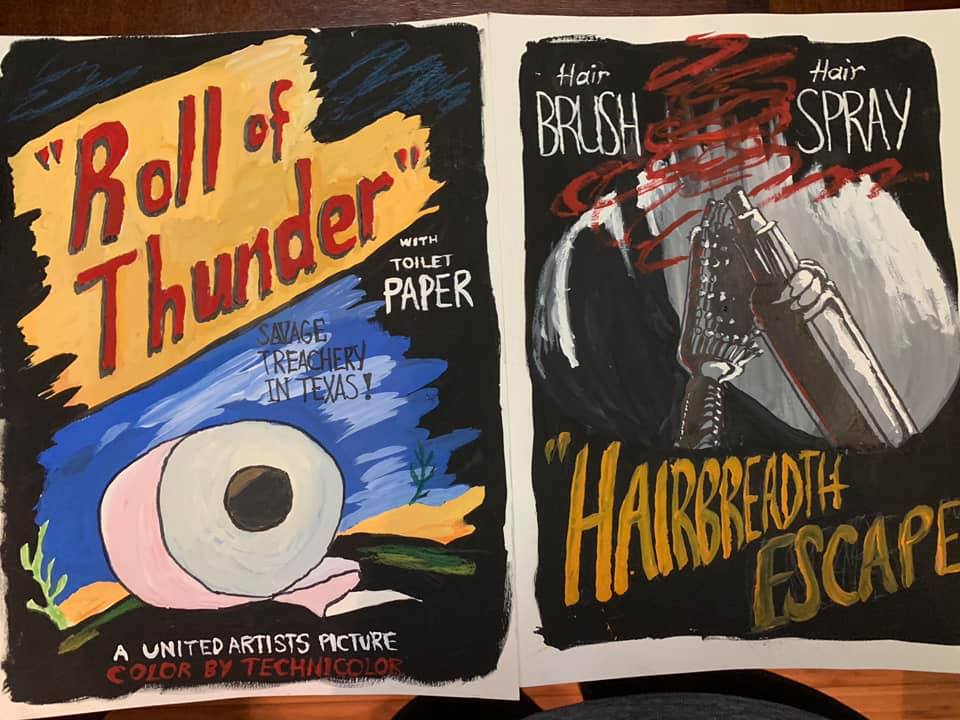 "Roll of
Thunder"
WITH
TOILET
PAPER
SAVAGE
TREACHERY
IN TEXAS!
A UNITED ARTISTS PICTURE
COLOR BY TECHNICOLOR
Hair
BRUSH
Hair
SPRAY
"HAIRBREADTH
ESCAPE